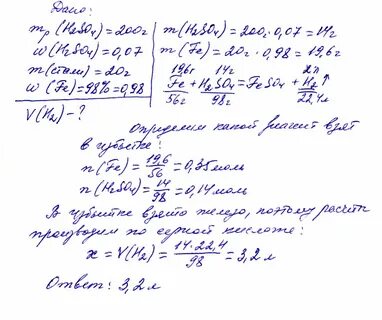 Дано:
mр(H₂SO₄)=200г
w(H₂SO₄)=0,07
m(стали)=20г
w(Fe)=98%=0,98
V(H₂)-?
m(H₂SO₄)=200·0,07=14г
m(Fe)=20г·0,98=19,6г
19,6г 14г xл
Fe + H₂SO₄ = FeSO₄ + H₂↑
56г 98г 22,4л
Определим какой реагент взят
в избытке:
n(Fe)=19,6/56=0,35моль
n(H₂SO₄)=14/98=0,14моль
В избытке взято железо, поэтому расчёты
производим по серной кислоте:
x=V(H₂)=14·22,4/98=3,2л
Ответ: 3,2л